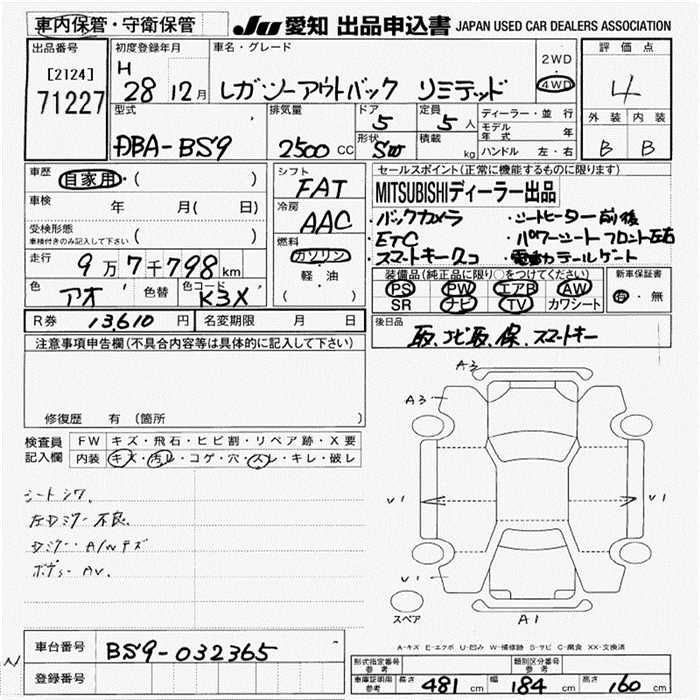 車内保管・守衛保管
JU 愛知 出品申込書 JAPAN USED CAR DEALERS ASSOCIATION
出品番号
[2124]
71227
初度登録年月
H 28 12月
車名・グレード
レガシーアウトバック リミテッド
2WD
4WD
評価点
4
外装 内装
B B
型式
DBA-BS9
排気量
2500 CC
ドア
5
定員
5 人
形状
SW
積載
kg
ディーラー・並行
モデル年式 年
ハンドル 左・右
車歴
自家用・( )
車検 年 月( 日)
受検形態
車検付きのみ記入して下さい ( )
走行 9万7千798km
色 アオ 色替 色コード K3X
シフト
FAT
冷房
AAC
燃料
ガソリン
軽・油
( )
セールスポイント(正常に機能するものに限ります)
MITSUBISHIディーラー出品
・バックカメラ ・シートヒーター前後
・ETC ・パワーシートフロント左右
・スマートキー2コ ・電動テールゲート
装備品(純正品に限り○をつけてください)
PS PW エアB AW
SR ナビ TV カワシート
新車保証書
有・無
R券 13,610 円 名変期限 月 日
後日品
取、ナビ取、保、スマートキー
注意事項申告欄(不具合内容等は具体的に記入して下さい)
修復歴 有 (箇所 )
検査員
記入欄
FW キズ・飛石・ヒビ割・リペア跡・X要
内装 キズ・汚れ・コゲ・穴・スレ・キレ・破レ
シートシワ、
左Dミラー不良
Dミラー A/Wキズ
ボデーAV.
A3
A3
V1
V1
V1
A1
スペア
A-キズ E-エクボ U-凹み W-補修跡 S-サビ C-腐食 XX-交換済
車台番号 BS9-032365
登録番号
形式指定番号
参考
類別区分番号
参考
車庫証明用
参考
長さ 481 cm 幅 184 cm 高さ 160 cm